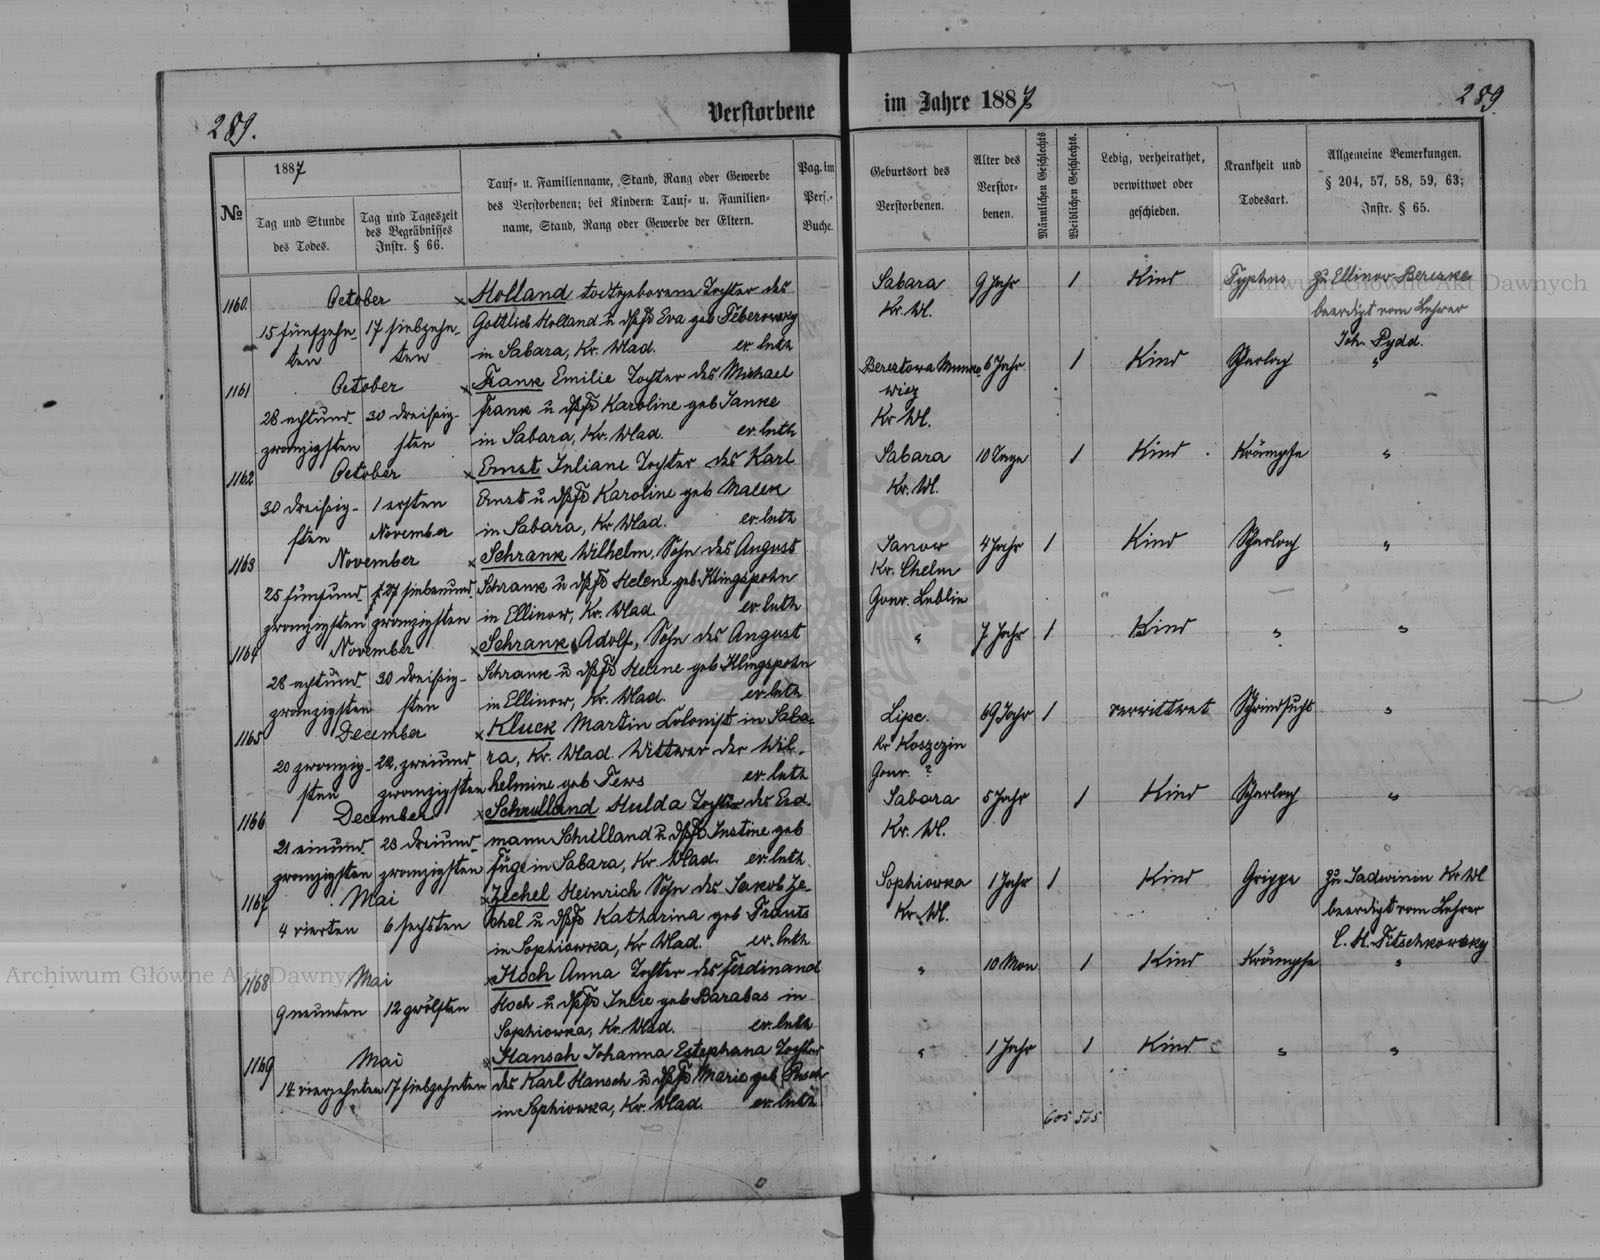 Verstorbene im Jahre 1887
289. 289.
№
1887
Tag und Stunde des Todes.
Tag und Tageszeit des Begräbnisses Instr. § 66.
Tauf= u. Familienname, Stand, Rang oder Gewerbe
des Verstorbenen; bei Kindern: Tauf= u. Familien=
name, Stand, Rang oder Gewerbe der Eltern.
Pag. im Pers.= Buche.
Geburtsort des Verstorbenen.
Alter des Verstor= benen.
Männlichen Geschlechts
Weiblichen Geschlechts.
Ledig, verheirathet, verwittwet oder geschieden.
Krankheit und Todesart.
Allgemeine Bemerkungen.
§ 204, 57, 58, 59, 63;
Instr. § 65.
1160. October × Holland todtgeborene Tochter des Sabara 9 Jahr 1 Kind Typhus zu Ellinow Berezke
15 fünfzehn- 17 siebzehn- Gottlieb Holland u Eva geb Feberowsky Kr. Wl. beerdigt vom Lehrer
ten ten in Sabara, Kr. Wlad. ev. luth Joh. Pydd.
1161 October × Frank Emilie Tochter des Michael 6 Jahr 1 Kind Scharlach "
28 achtund- 30 dreißig- Frank u Karoline geb Janke wicz
zwanzigsten sten in Sabara, Kr. Wlad. ev. luth Kr Wl.
1162 October × Ernst Juliane Tochter des Karl Sabara 10 Tage 1 Kind Krämpfe "
30 dreißig- 1 ersten Ernst u Karoline geb Malek Kr. Wl.
sten November in Sabara, Kr. Wlad. ev. luth
1163 November × Schrank Wilhelm, Sohn des August Janow 4 Jahr 1 Kind Scharlach "
25 fünfund- 27 siebenund- Schrank u Helene geb Klingspohn Kr. Chelm
zwanzigsten zwanzigsten in Ellinow, Kr. Wlad. ev. luth Gouv. Lublin
1164 November × Schrank Adolf, Sohn des August " 7 Jahr 1 Kind " "
28 achtund- 30 dreißig- Schrank u Helene geb Klingspohn
zwanzigsten sten in Ellinow, Kr. Wlad. ev. luth
1165 December × Kluck Martin Colonist in Saba- Lipe. 69 Jahr 1 verwittwet Schwindsucht "
20 zwanzig- 22, zweiund- ra, Kr. Wlad. Wittwer der Wil- Kr Koszezin
sten zwanzigsten helmine geb Tews ev. luth Gouv. ?
1166 December × Schulland Hulda Tochter des Erd- Sabara 5 Jahr 1 Kind Scharlach "
21 einund- 23 dreiund- mann Schulland u Justine geb Kr. Wl.
zwanzigsten zwanzigsten in Sabara, Kr. Wlad. ev. luth.
1167 Mai × Zechel Heinrich Sohn des Jakob Ze- Sophiowka 1 Jahr 1 Kind Grippe zu Jadwinin Kr Wl
4 vierten 6 sechsten chel u Katharina geb Frants Kr. Wl. beerdigt vom Lehrer
in Sophiowka, Kr Wlad. ev. luth C. H. Fitschkowsky
1168 Mai × Koch Anna Tochter des Ferdinand " 10 Mon 1 Kind Krämpfe "
9 neunten 12 zwölften Koch u Julie geb Barabas in
Sophiowka, Kr. Wlad. ev. luth
1169 Mai × Hansch Johanna Estephana Tochter " 1 Jahr 1 Kind " "
14 vierzehnten 17 siebzehnten des Karl Hansch u Marie geb
in Sophiowka, Kr. Wlad. ev. luth
605 565
Archiwum Główne Akt Dawnych
Archiwum Główne Akt Dawnych